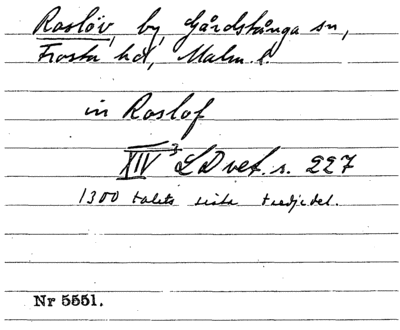 Roslöv, by, Gårdstånga sn,
Frosta hd, Malm. l.
in Roslof
XIV³ LDvet. s. 227
1300 talets sista tredjedel.
Nr 5551.